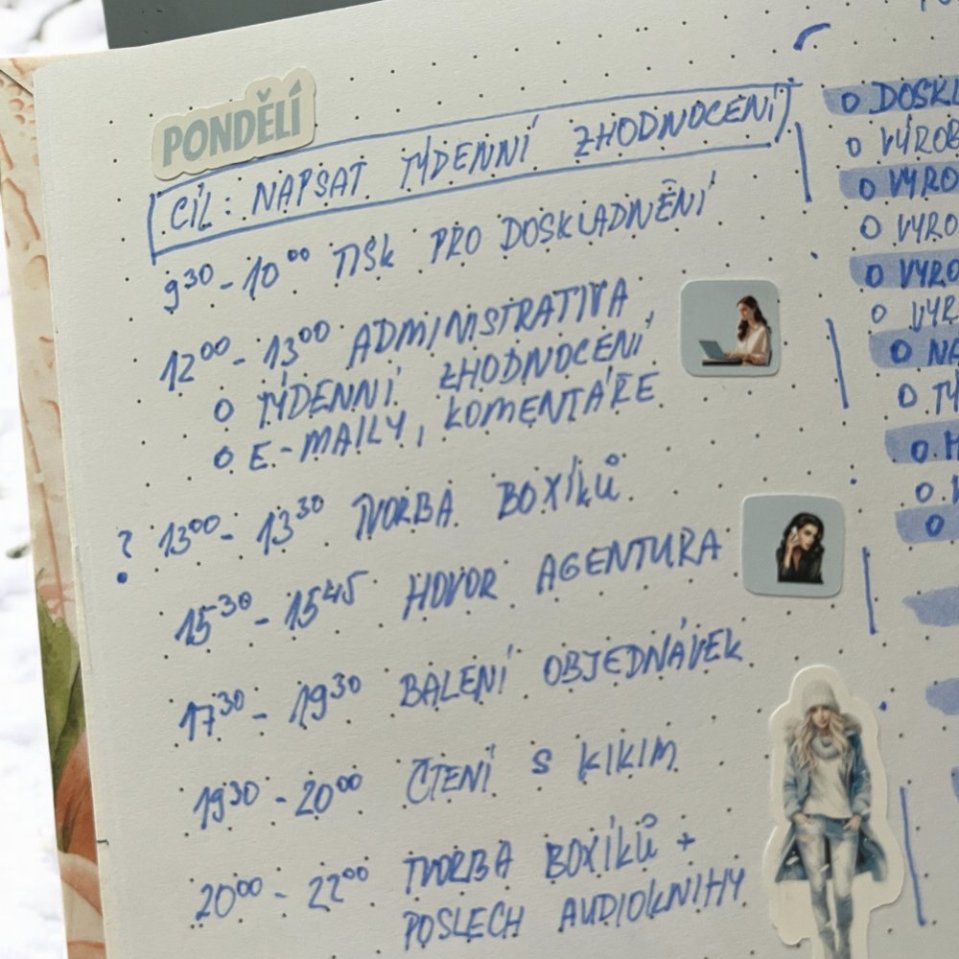 PONDĚLÍ
CÍL: NAPSAT TÝDENNÍ ZHODNOCENÍ
9³⁰ - 10⁰⁰ TISK PRO DOSKLADNĚNÍ
12⁰⁰ - 13⁰⁰ ADMINISTRATIVA
O TÝDENNÍ ZHODNOCENÍ
O E-MAILY, KOMENTÁŘE
? 13⁰⁰ - 13³⁰ TVORBA BOXÍKŮ
15³⁰ - 15⁴⁵ HOVOR AGENTURA
17³⁰ - 19³⁰ BALENÍ OBJEDNÁVEK
19³⁰ - 20⁰⁰ ČTENÍ S KIKIM
20⁰⁰ - 22⁰⁰ TVORBA BOXÍKŮ +
POSLECH AUDIOKNIHY